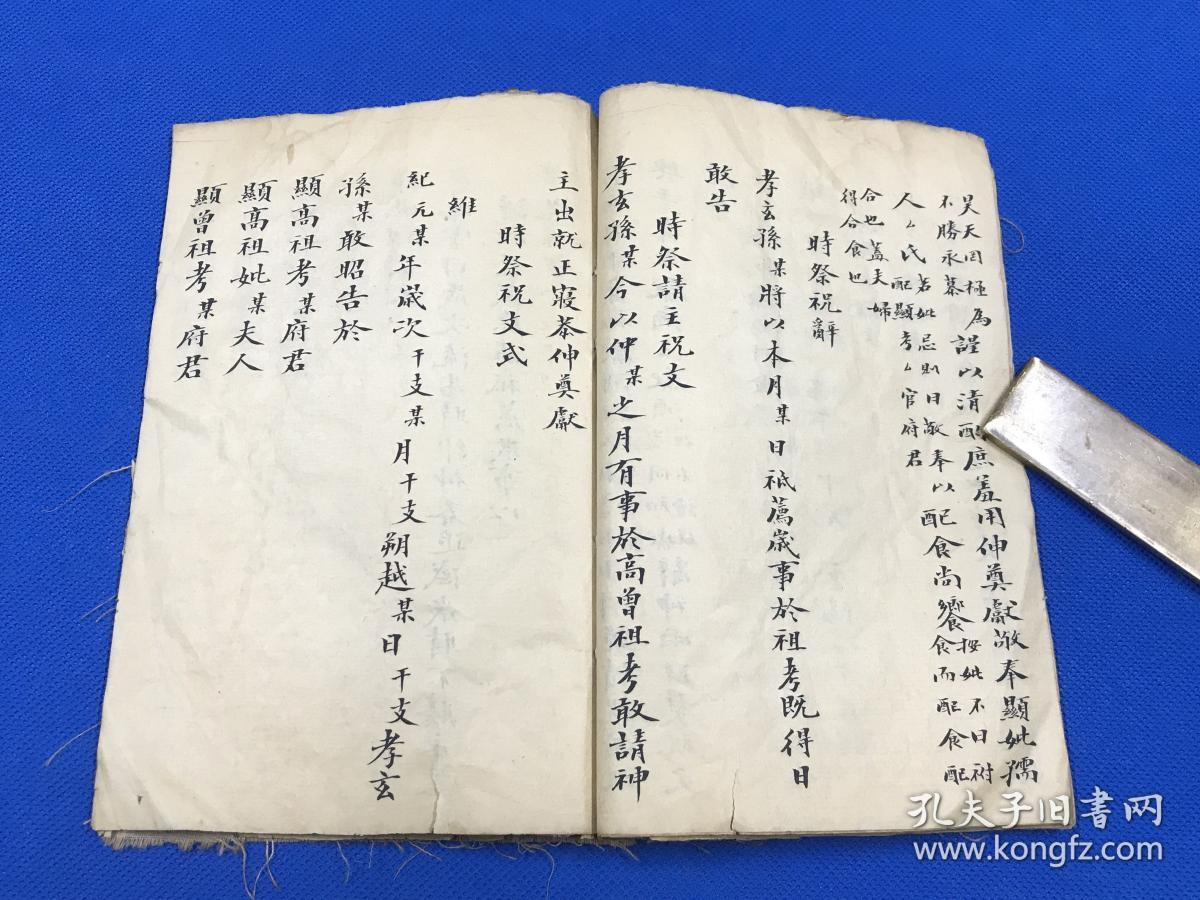 昊天罔極
不勝永慕
為謹以清酌庶羞用伸奠獻敬奉顯妣孺
人厶氏
若妣忌則曰
配顯考厶官府君
敬奉以配食尚饗
按妣不曰祔
食而配食配
合也蓋夫婦
得合食也
時祭祝辭
孝玄孫某將以本月某日祗薦歲事於祖考既得日
敢告
時祭請主祝文
孝玄孫某今以仲某之月有事於高曾祖考敢請神
主出就正寢恭伸奠獻
時祭祝文式
維
紀元某年歲次干支某月干支朔越某日干支孝玄
孫某敢昭告於
顯高祖考某府君
顯高祖妣某夫人
顯曾祖考某府君
孔夫子旧書网
www.kongfz.com